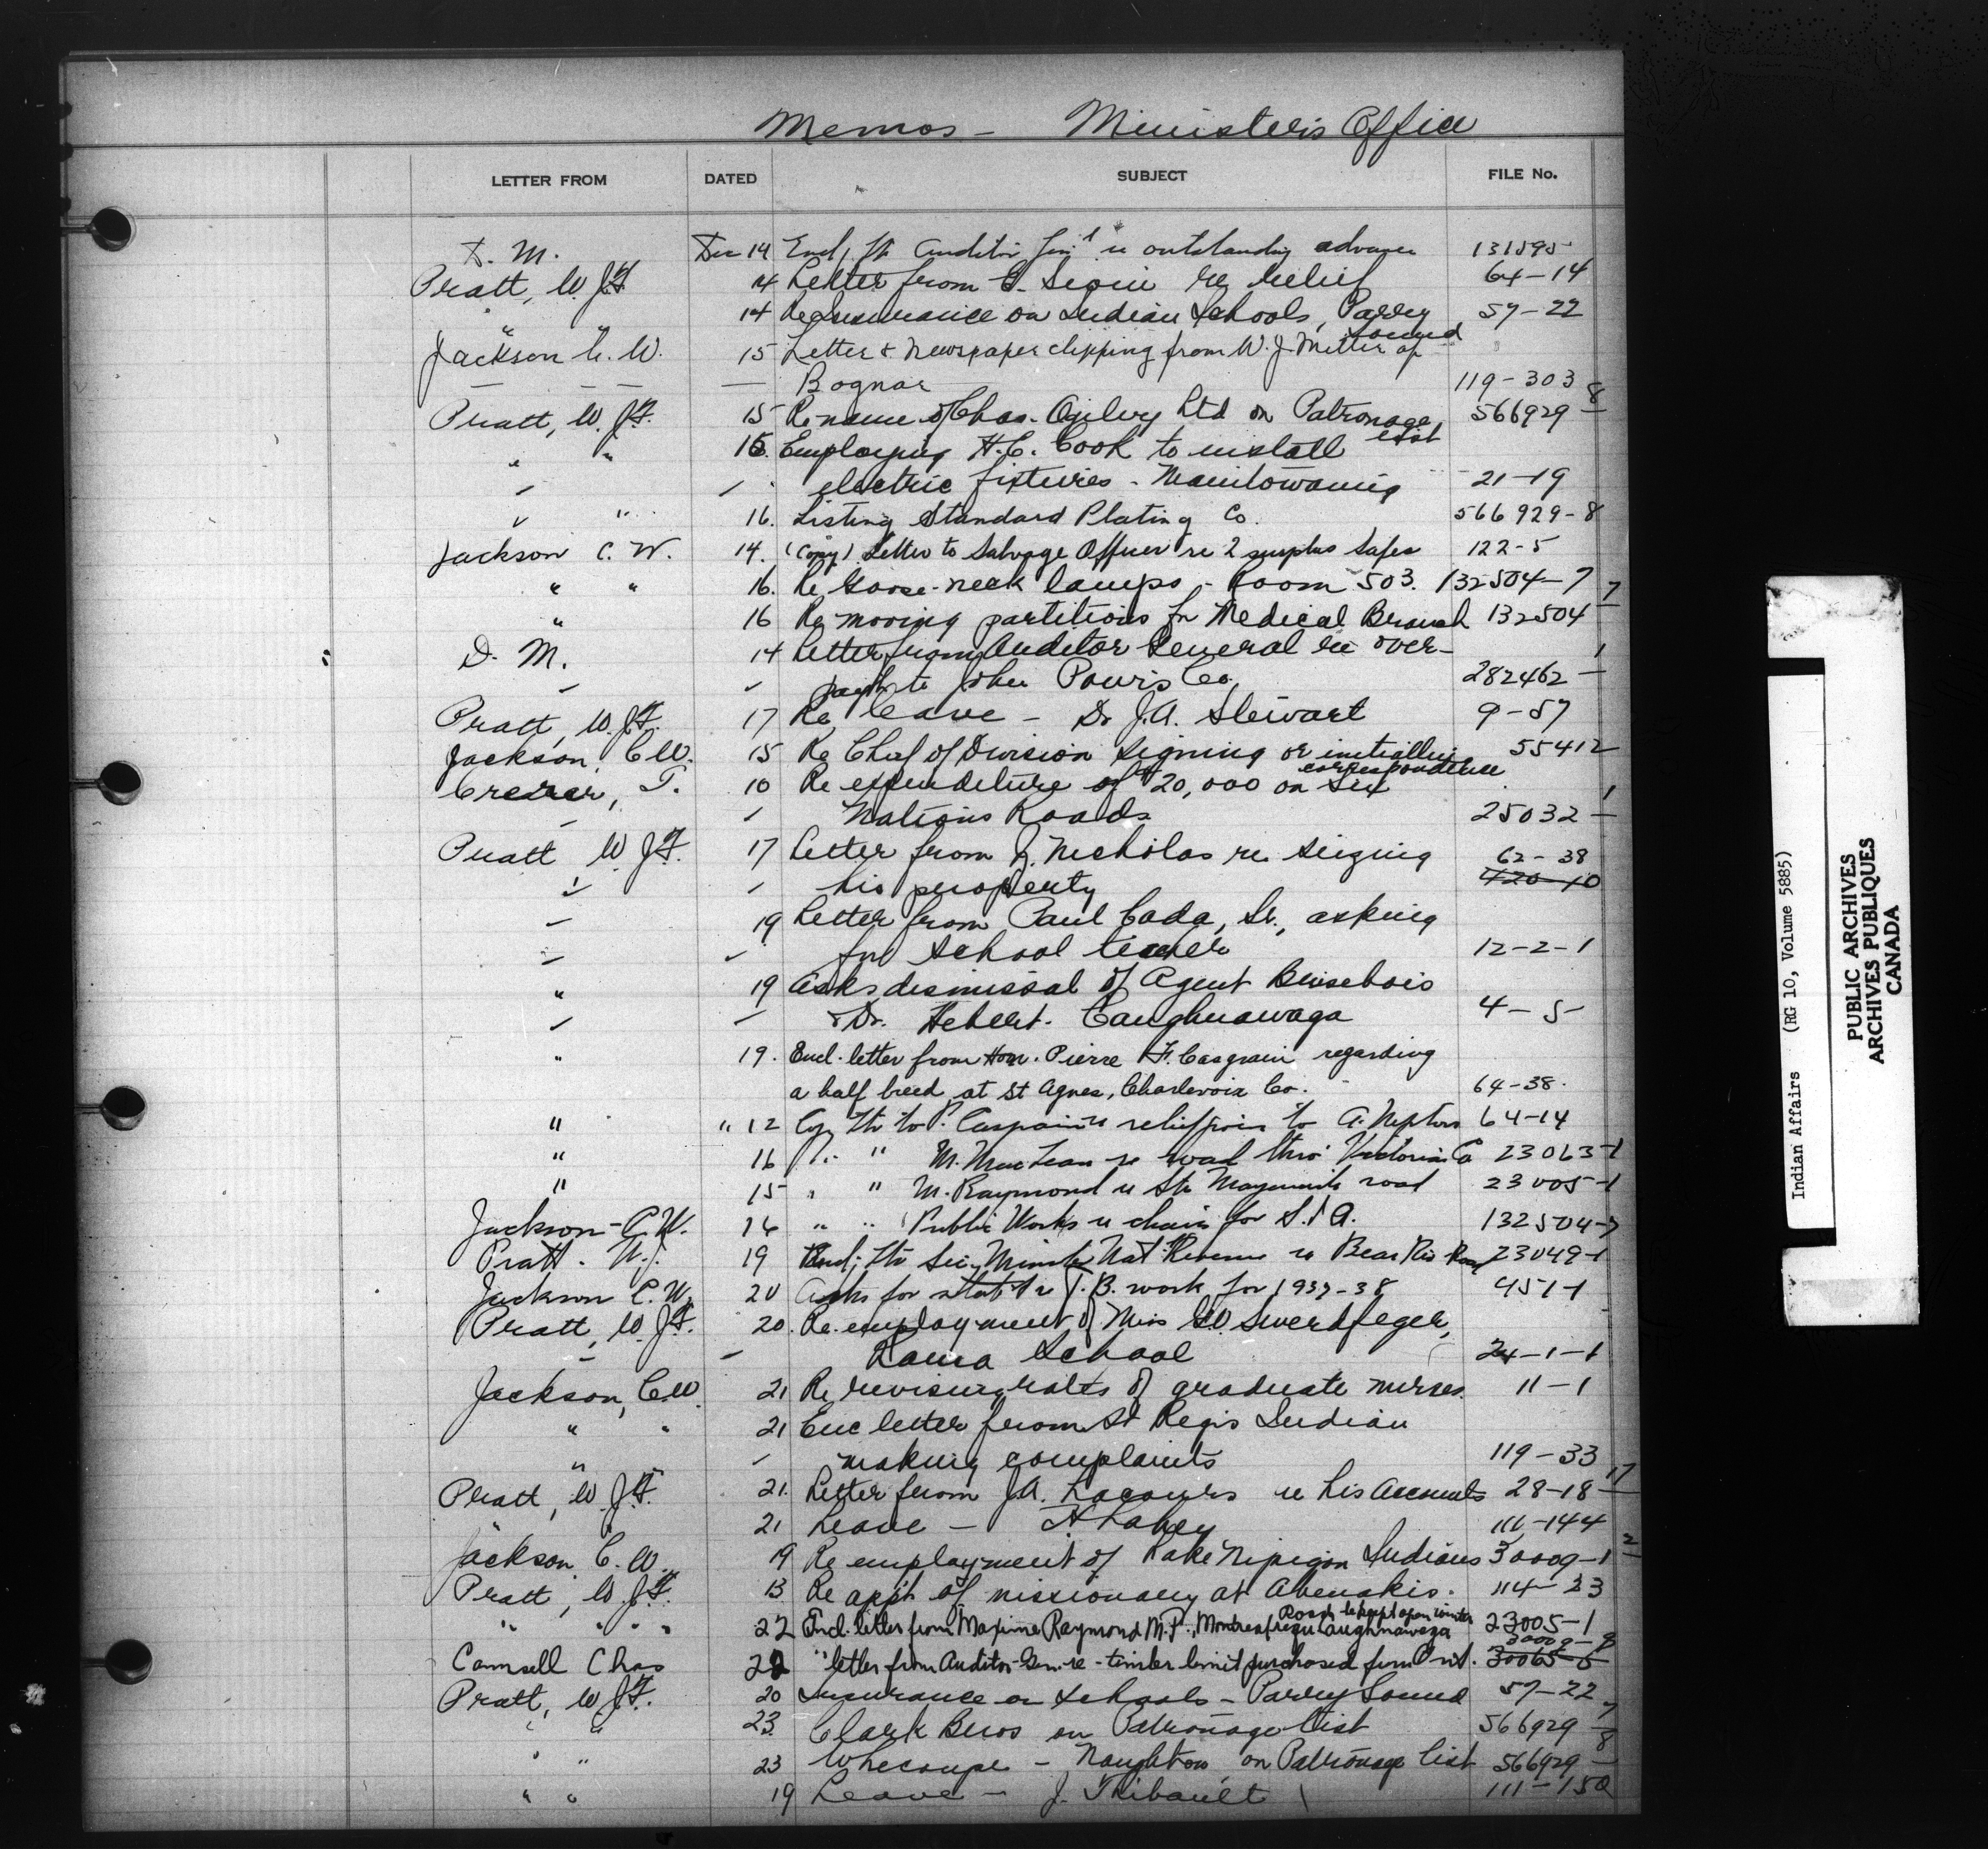 Memos – Minister's Office
LETTER FROM DATED SUBJECT FILE No.
D. M. Dec 14 Encl. ltr Auditor Gen'l re outstanding advance 131595
Pratt, W. J.F. 14 Letter from re relief 64-14
" " 14 Re Insurance on Indian Schools, Parry Sound 57-22
Jackson C. W. 15 Letter & Newspaper clipping from W. J. Mitter of
— — — — Bognar 119-303
Pratt, W. J.F. 15 Re name of Chas. Ogilvy Ltd on Patronage List 566929-8
" " 15. Employing H.C. Cook to install
" " electric fixtures - Manitowaning 21-19
" " 16. Listing Standard Plating Co. 566929-8
Jackson C. W. 14. (Copy) Letter to Salvage Officer re 2 surplus safes 122-5
" " 16. Re Goose-neck lamps - Room 503. 132504-7
" 16 Re moving partitions for Medical Branch 132504-7
D. M. 14 Letter from Auditor General re over-
" " paym't to John Powis Co. 282462-1
Pratt, W. J.F. 17 Re leave - Dr J.A. Stewart 9-57
Jackson, C.W. 15 Re Chief of Division signing or initialling correspondence 55412
Crerar, T. 10 Re expenditure of $20,000 on Six
" " Nations Roads 25032-1
Pratt W. J.F. 17 Letter from J. Nicholas re seizing 62-38
" " his property 420-10
" 19 Letter from Paul Cada, Sr., asking
" " for school teacher 12-2-1
" 19 Asks dismissal of Agent Brisebois
" " & Dr. Hebert. Caughnawaga 4-5
" 19. Encl. letter from Hon. Pierre F. Casgrain regarding
a half breed at St Agnes, Charlevoix Co. 64-38.
" " 12 Copy ltr to P. Casgrain re relief to A. 64-14
" 16 " " M. MacLean re road thro' Victoria Co 23063-1
" 15 " " M. Raymond re Ste Marguerite road 23005-1
Jackson - C.W. 16 " " Public Works re chairs for S.I.A. 132504-7
Pratt. W.J. 19 Encl. ltr Sec. Minister Nat'l Revenue re Bear Riv Road 23049-1
Jackson C.W. 20 Asks for stat't re T.B. work for 1937-38 451-1
Pratt, W. J.F. 20. Re employment of Miss Swerdfeger,
" " Rama School 24-1-1
Jackson, C.W. 21 Re revising rates of graduate nurses. 11-1
" " 21 Enc letter from St Regis Indian
" " making complaints 119-33
Pratt, W. J.F. 21. Letter from J.A. Lacours re his accounts 28-18-17
" 21 Leave - A Lahey 111-144
Jackson C. W. 19 Re employment of Lake Nipigon Indians 30009-1
Pratt, W. J.F. 13 Re app't of missionary at Abenakis. 114-23
" " " 22 Encl. letter from Maxime Raymond M.P., Montreal, requ Caughnawaga Road to be kept open winter 23005-1
Camsell Chas 22 " letter from Auditor-Gen. re - timber limit purchased from Ont. 30065-5
Pratt, W. J.F. 20 Insurance on Schools - Parry Sound 57-22
" " 23 Clark Bros on Patronage List 566929-7
" " 23 Whecoupe - Naughton, on Patronage list 566929-8
" " 19 Leave - J. Thibault 111-150
Indian Affairs (RG 10, Volume 5885)
PUBLIC ARCHIVES
ARCHIVES PUBLIQUES
CANADA